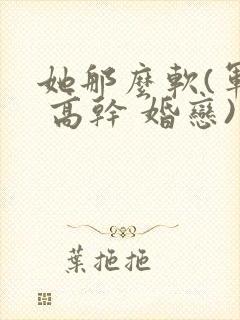 她那麼軟(軍
高幹 婚戀)
葉拖拖